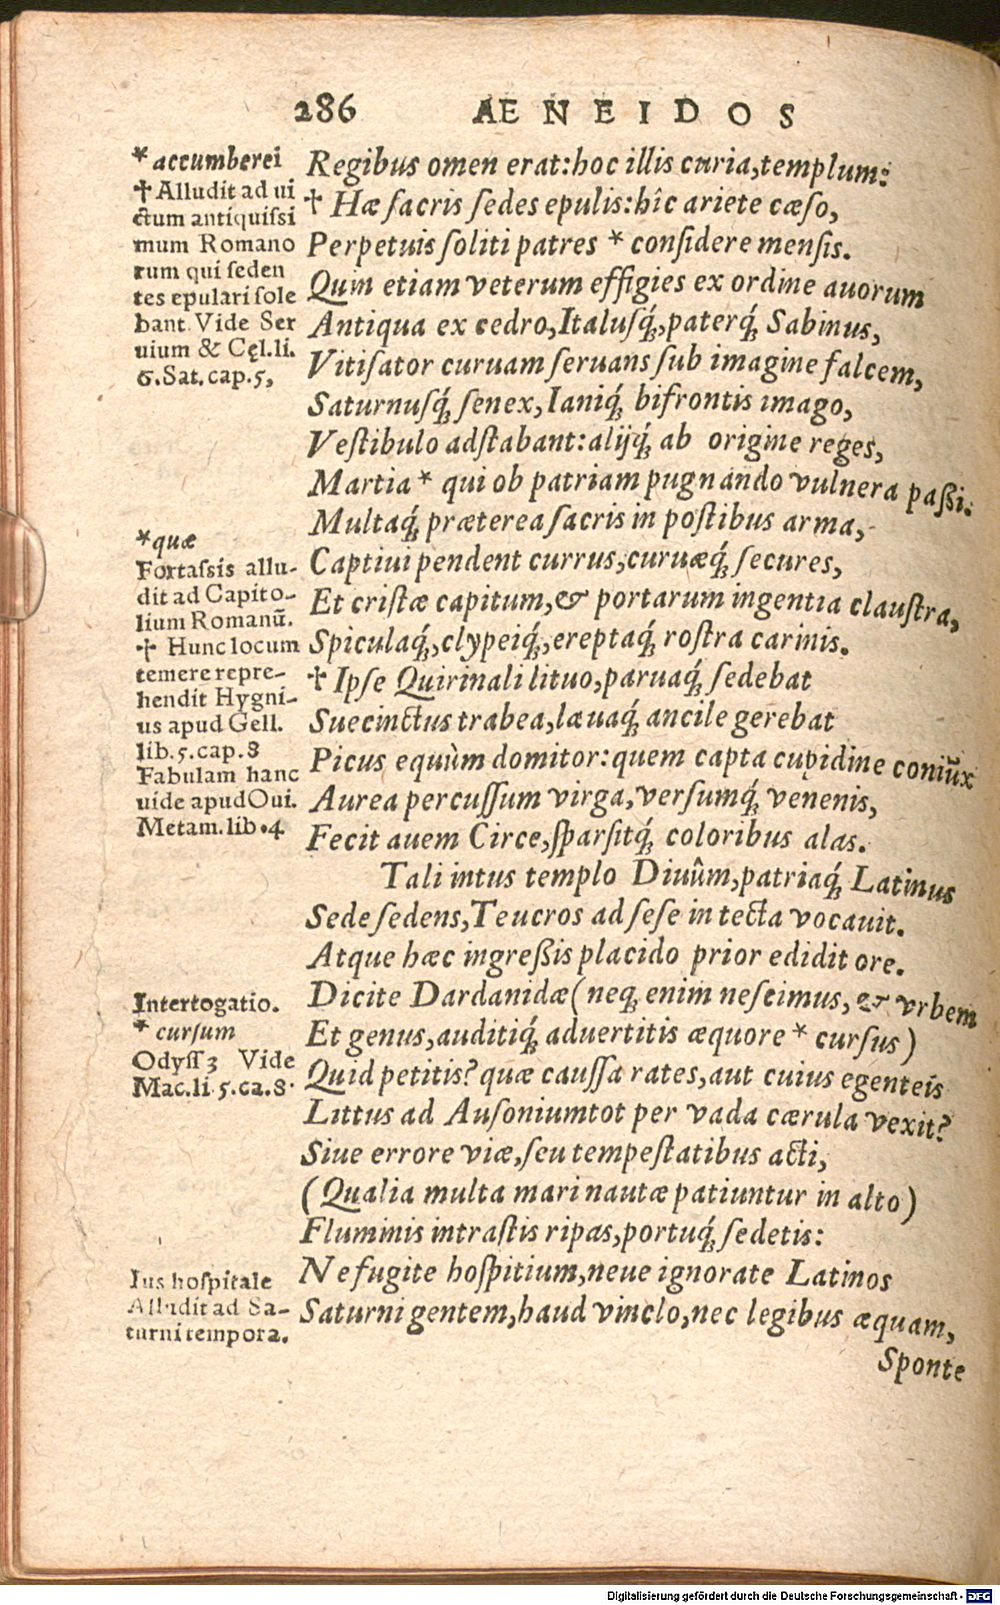 286 AENEIDOS
*accumberei
✝Alludit ad ui
ctum antiquissi
mum Romano
rum qui seden
tes epulari sole
bant. Vide Ser
uium & Cęl. li.
6. Sat. cap. 5,
*quæ
Fortassis allu-
dit ad Capito-
lium Romanū.
✝ Hunc locum
temere repre-
hendit Hygni-
us apud Gell.
lib. 5. cap. 8
Fabulam hanc
uide apud Oui.
Metam. lib. 4
Intertogatio.
* cursum
Odyss 3 Vide
Mac. li 5. ca. 8.
Ius hospitale
Alludit ad Sa-
turni tempora.
Regibus omen erat: hoc illis curia, templum:
✝ Hæ sacris sedes epulis: hîc ariete cæso,
Perpetuis soliti patres * considere mensis.
Quin etiam veterum effigies ex ordine auorum
Antiqua ex cedro, Italusq́;, paterq́; Sabinus,
Vitisator curuam seruans sub imagine falcem,
Saturnusq́; senex, Ianiq́; bifrontis imago,
Vestibulo adstabant: alijq́; ab origine reges,
Martia * qui ob patriam pugnando vulnera paßi.
Multaq́; præterea sacris in postibus arma,
Captiui pendent currus, curuæq́; secures,
Et cristæ capitum, & portarum ingentia claustra,
Spiculaq́;, clypeiq́;, ereptaq́; rostra carinis.
✝ Ipse Quirinali lituo, paruaq́; sedebat
Succinctus trabea, læuaq́; ancile gerebat
Picus equûm domitor: quem capta cupidine coniux
Aurea percussum virga, versumq́; venenis,
Fecit auem Circe, sparsitq́; coloribus alas.
Tali intus templo Diuûm, patriaq́; Latinus
Sede sedens, Teucros ad sese in tecta vocauit.
Atque hæc ingreßis placido prior edidit ore.
Dicite Dardanidæ (neq; enim nescimus, & vrbem
Et genus, auditiq́; aduertitis æquore * cursus)
Quid petitis? quæ caussa rates, aut cuius egenteis
Littus ad Ausonium tot per vada cærula vexit?
Siue errore viæ, seu tempestatibus acti,
(Qualia multa mari nautæ patiuntur in alto)
Fluminis intrastis ripas, portuq́; sedetis:
Ne fugite hospitium, neue ignorate Latinos
Saturni gentem, haud vinclo, nec legibus æquam,
Sponte
Digitalisierung gefördert durch die Deutsche Forschungsgemeinschaft - DFG